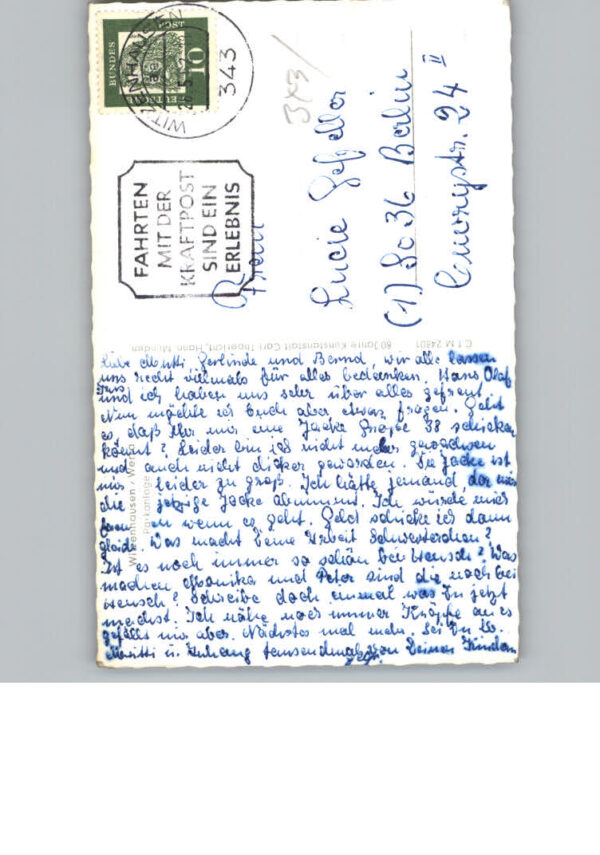 WITZENHAUSEN
343
DEUTSCHE BUNDESPOST
10
FAHRTEN
MIT DER
KRAFTPOST
SIND EIN
ERLEBNIS
343
Frau
Lucie
(1) So 36 Berlin
Cuvrystr. 24 II
C T M 24601 80 Jahre Kunstanstalt Carl Thoericht, Hann. Münden
Witzenhausen / Werra
Parkanlage
Liebe Mutti Gerlinde und Bernd, wir alle lassen
uns recht vielmals für alles bedanken. Hans Olaf
und ich haben uns sehr über alles gefreut.
Nun möchte ich Euch aber etwas fragen. Geht
es daß Ihr mir eine Jacke Größe 38 schicken
könnt? Leider bin ich nicht mehr gewachsen
und auch nicht dicker geworden. Die Jacke ist
mir leider zu groß. Ich hätte jemand der mir
die jetzige Jacke abnimmt. Ich würde mich
freuen wenn es geht. Geld schicke ich dann
gleich. Was macht Deine Arbeit Schwesterchen?
Ist es noch immer so schön bei Hensch? Was
machen Monika und Peter sind die noch bei
Hensch? Schreibe doch einmal was Du jetzt
machst. Ich nähe noch immer Knöpfe an es
gefällt mir aber. Nächstes mal mehr. Sei Du lb.
Mutti u. Anhang tausendmal von Deinen Kindern